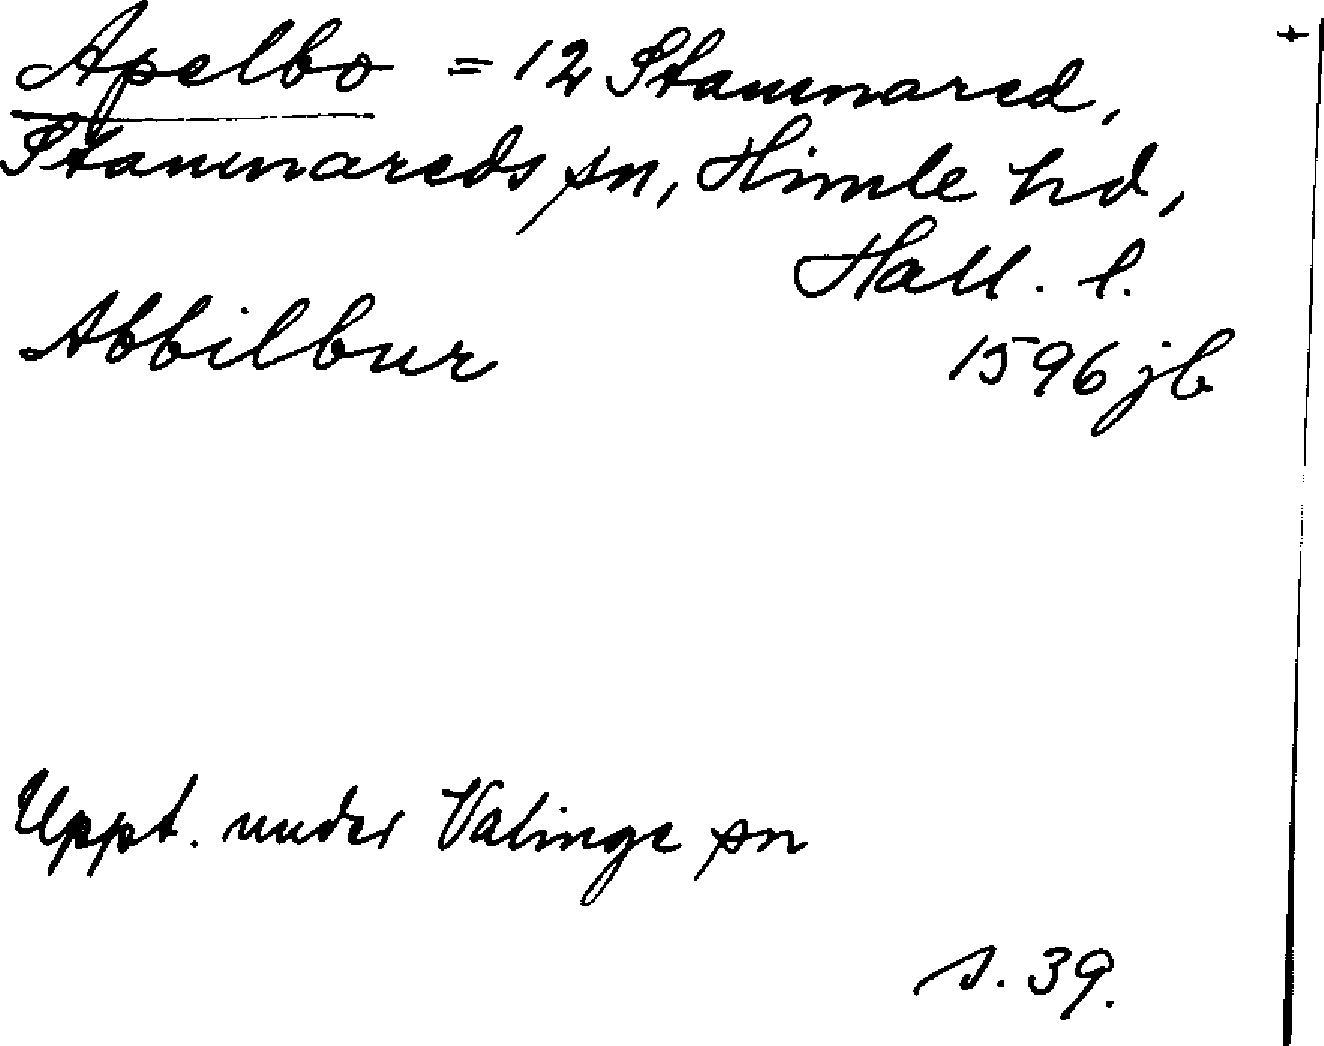 Apelbo = 12 Stamnared,
Stamnareds sn, Himle hd,
Hall. l.
Abbilbur 1596 jb
Uppt. under Valinge sn
s. 39.